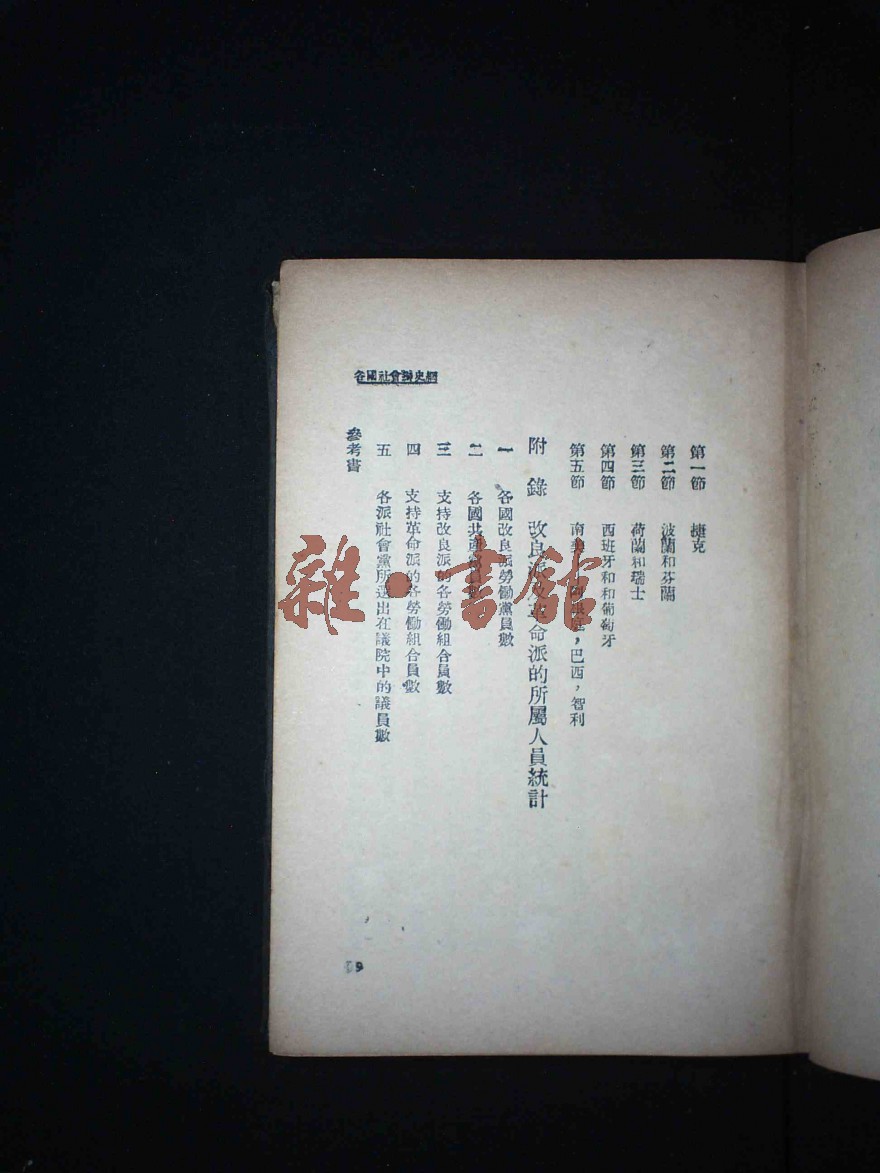 各國社會黨史綱
第一節 捷克
第二節 波蘭和芬蘭
第三節 荷蘭和瑞士
第四節 西班牙和和葡萄牙
第五節 南美 巴西，智利
附錄 改良派及革命派的所屬人員統計
一 各國改良派勞働黨員數
二 各國共產黨員數
三 支持改良派的各勞働組合員數
四 支持革命派的各勞働組合員數
五 各派社會黨所選出在議院中的議員數
參考書
9
雜·書館